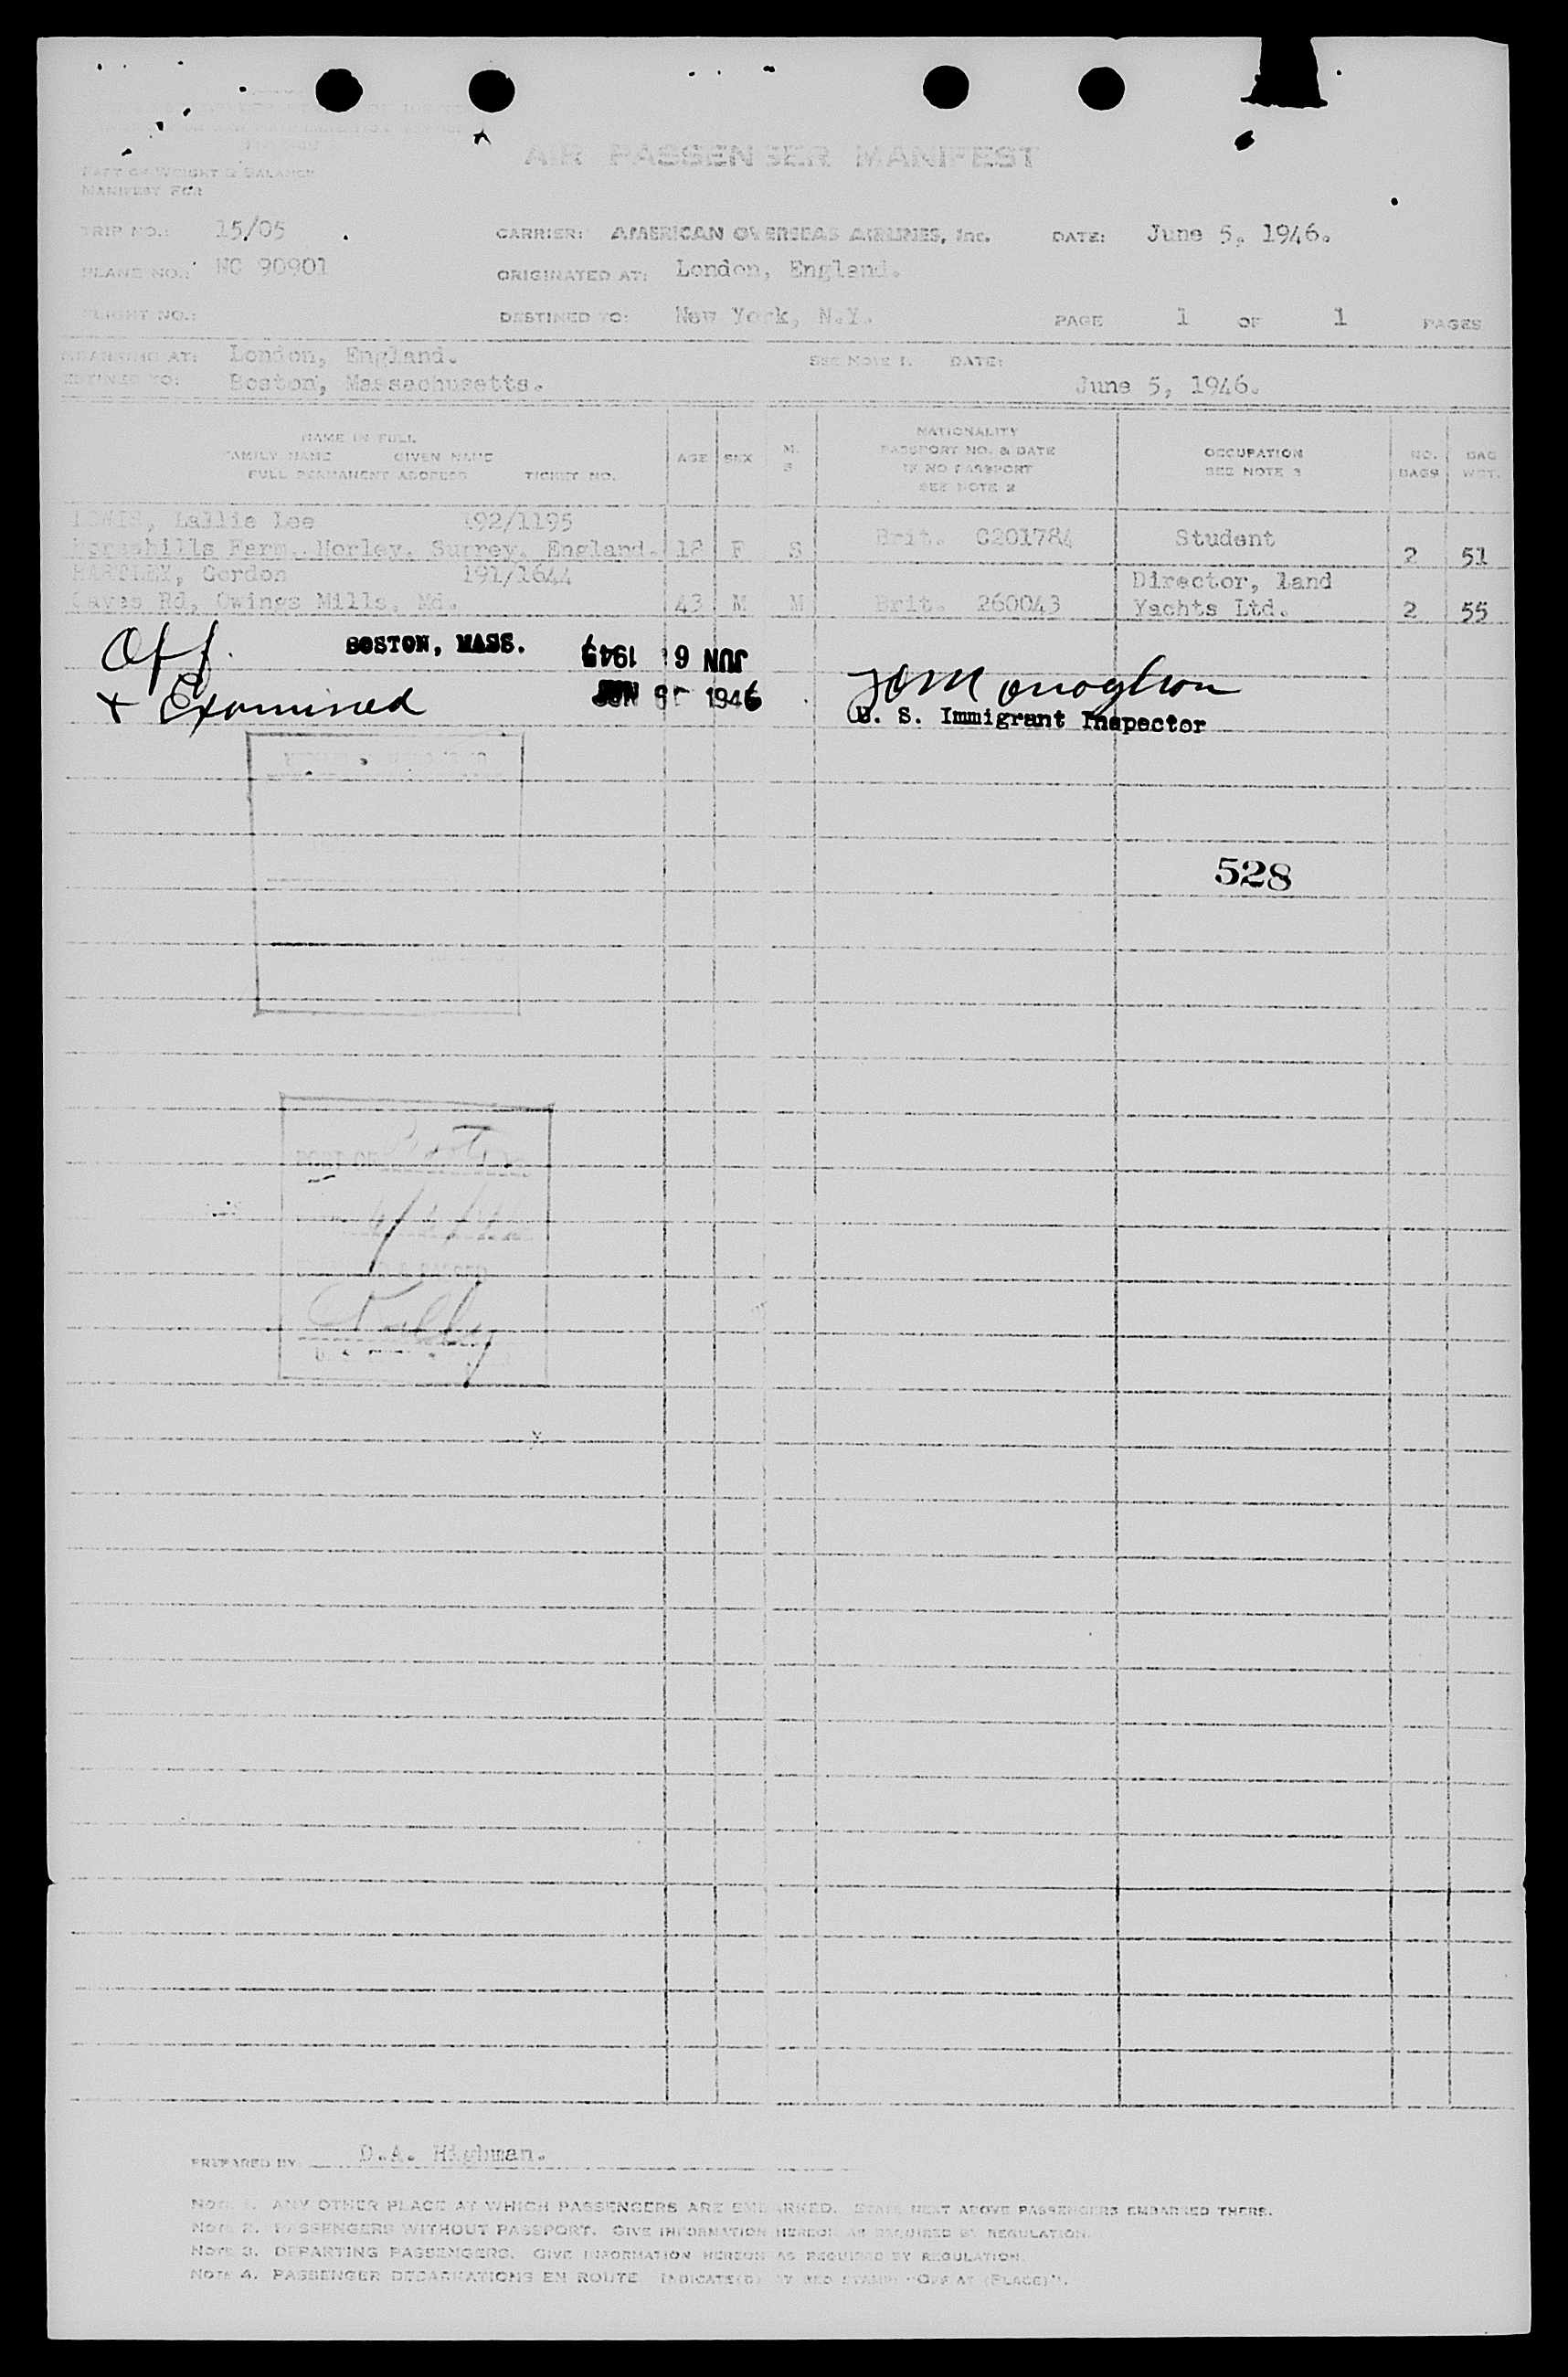 AIR PASSENGER MANIFEST
PART OF WEIGHT & BALANCE
MANIFEST FOR
TRIP NO.: 15/05 CARRIER: AMERICAN OVERSEAS AIRLINES, Inc. DATE: June 5, 1946.
PLANE NO.: NC 90901 ORIGINATED AT: London, England.
FLIGHT NO.: DESTINED TO: New York, N.Y. PAGE 1 OF 1 PAGES
AT: London, England. SEE NOTE 1. DATE:
DESTINED TO: Boston, Massachusetts. June 5, 1946.
NAME IN FULL
FAMILY NAME GIVEN NAME
FULL PERMANENT ADDRESS TICKET NO.
AGE SEX M. S
NATIONALITY
PASSPORT NO. & DATE
IF NO PASSPORT
SEE NOTE 2
OCCUPATION
SEE NOTE 3
NO. BAGS
BAG WGT.
LEWIS, Lallie Lee 192/1195
Farm, Horley, Surrey, England. 18 F S Brit. C201784 Student 2 51
HARTLEY, Gordon 191/1644 Director, land
Caves Rd, Owings Mills, Md. 43 M M Brit. 260043 Yachts Ltd. 2 55
Off. BOSTON, MASS. JUN 6 1945
+ Examined JUN 1946
U. S. Immigrant Inspector
528
PREPARED BY D.A. Highman.
NOTE 1. ANY OTHER PLACE AT WHICH PASSENGERS ARE EMBARKED. STATE NEXT ABOVE PASSENGERS EMBARKED THERE.
NOTE 2. PASSENGERS WITHOUT PASSPORT. GIVE INFORMATION HEREON AS REQUIRED BY REGULATION.
NOTE 3. DEPARTING PASSENGERS. GIVE INFORMATION HEREON AS REQUIRED BY REGULATION.
NOTE 4. PASSENGER DEBARKATIONS EN ROUTE INDICATE(D) BY RED STAMP "OFF AT (PLACE)".